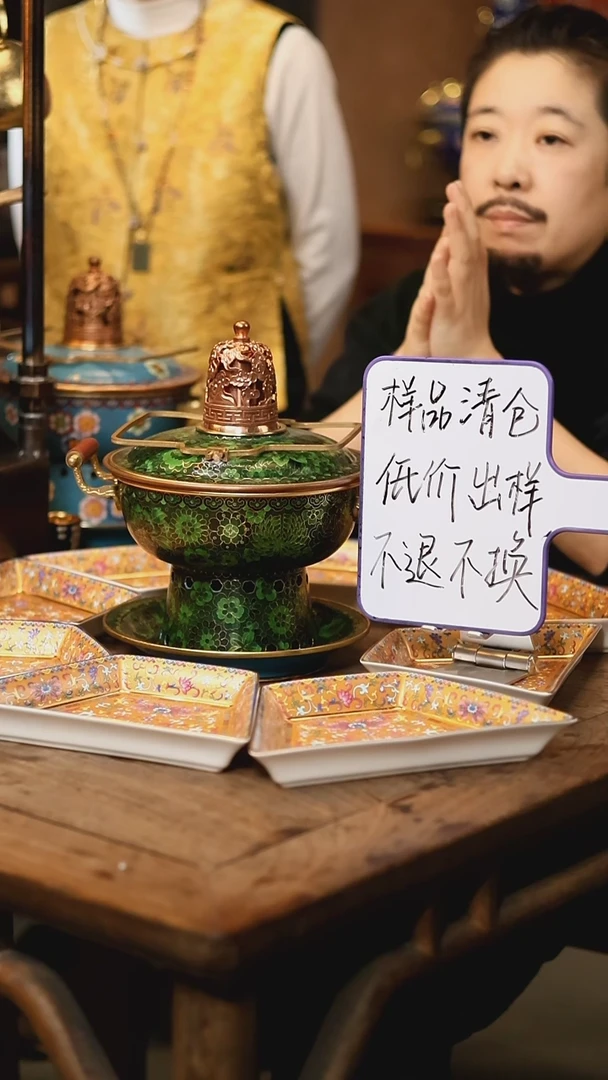 样品清仓
低价出样
不退不换